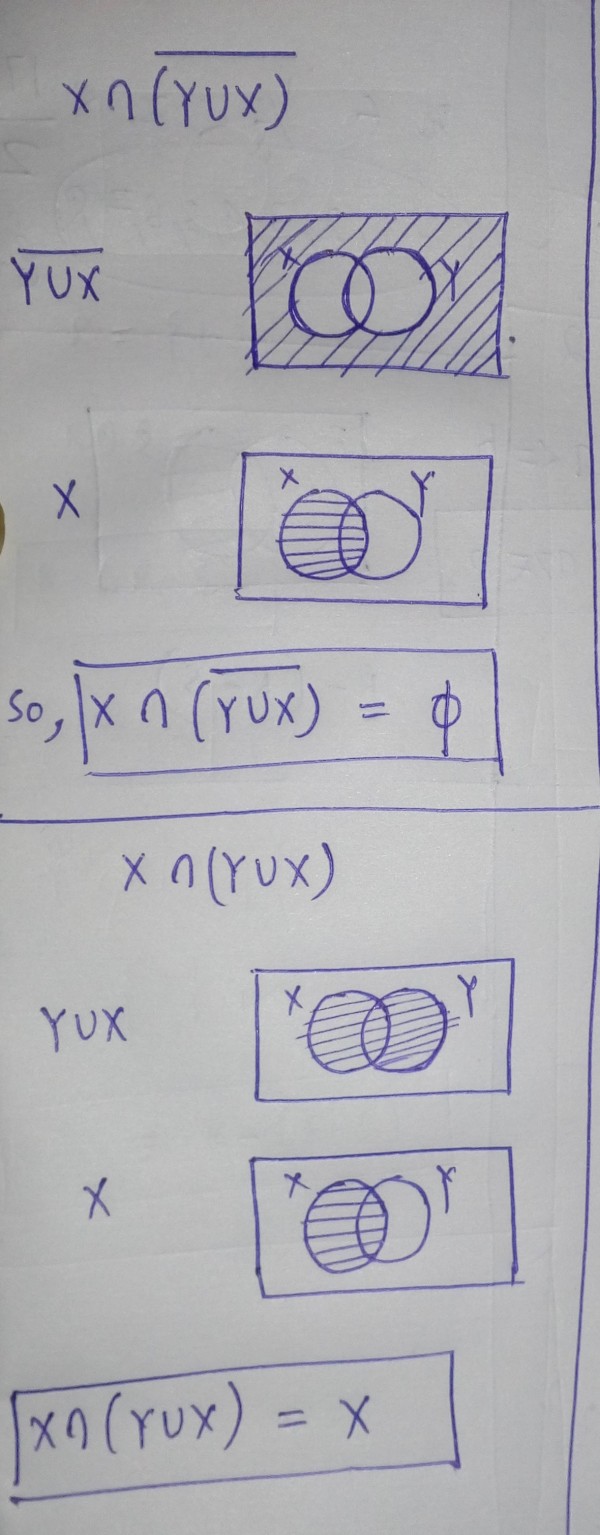 X ∩ (Y̅ ̅U̅ ̅X̅)
Y̅ ̅U̅ ̅X̅
X Y
X
X Y
So, X ∩ (Y̅ ̅U̅ ̅X̅) = ϕ
X ∩ (Y U X)
Y U X
X Y
X
X Y
X ∩ (Y U X) = X